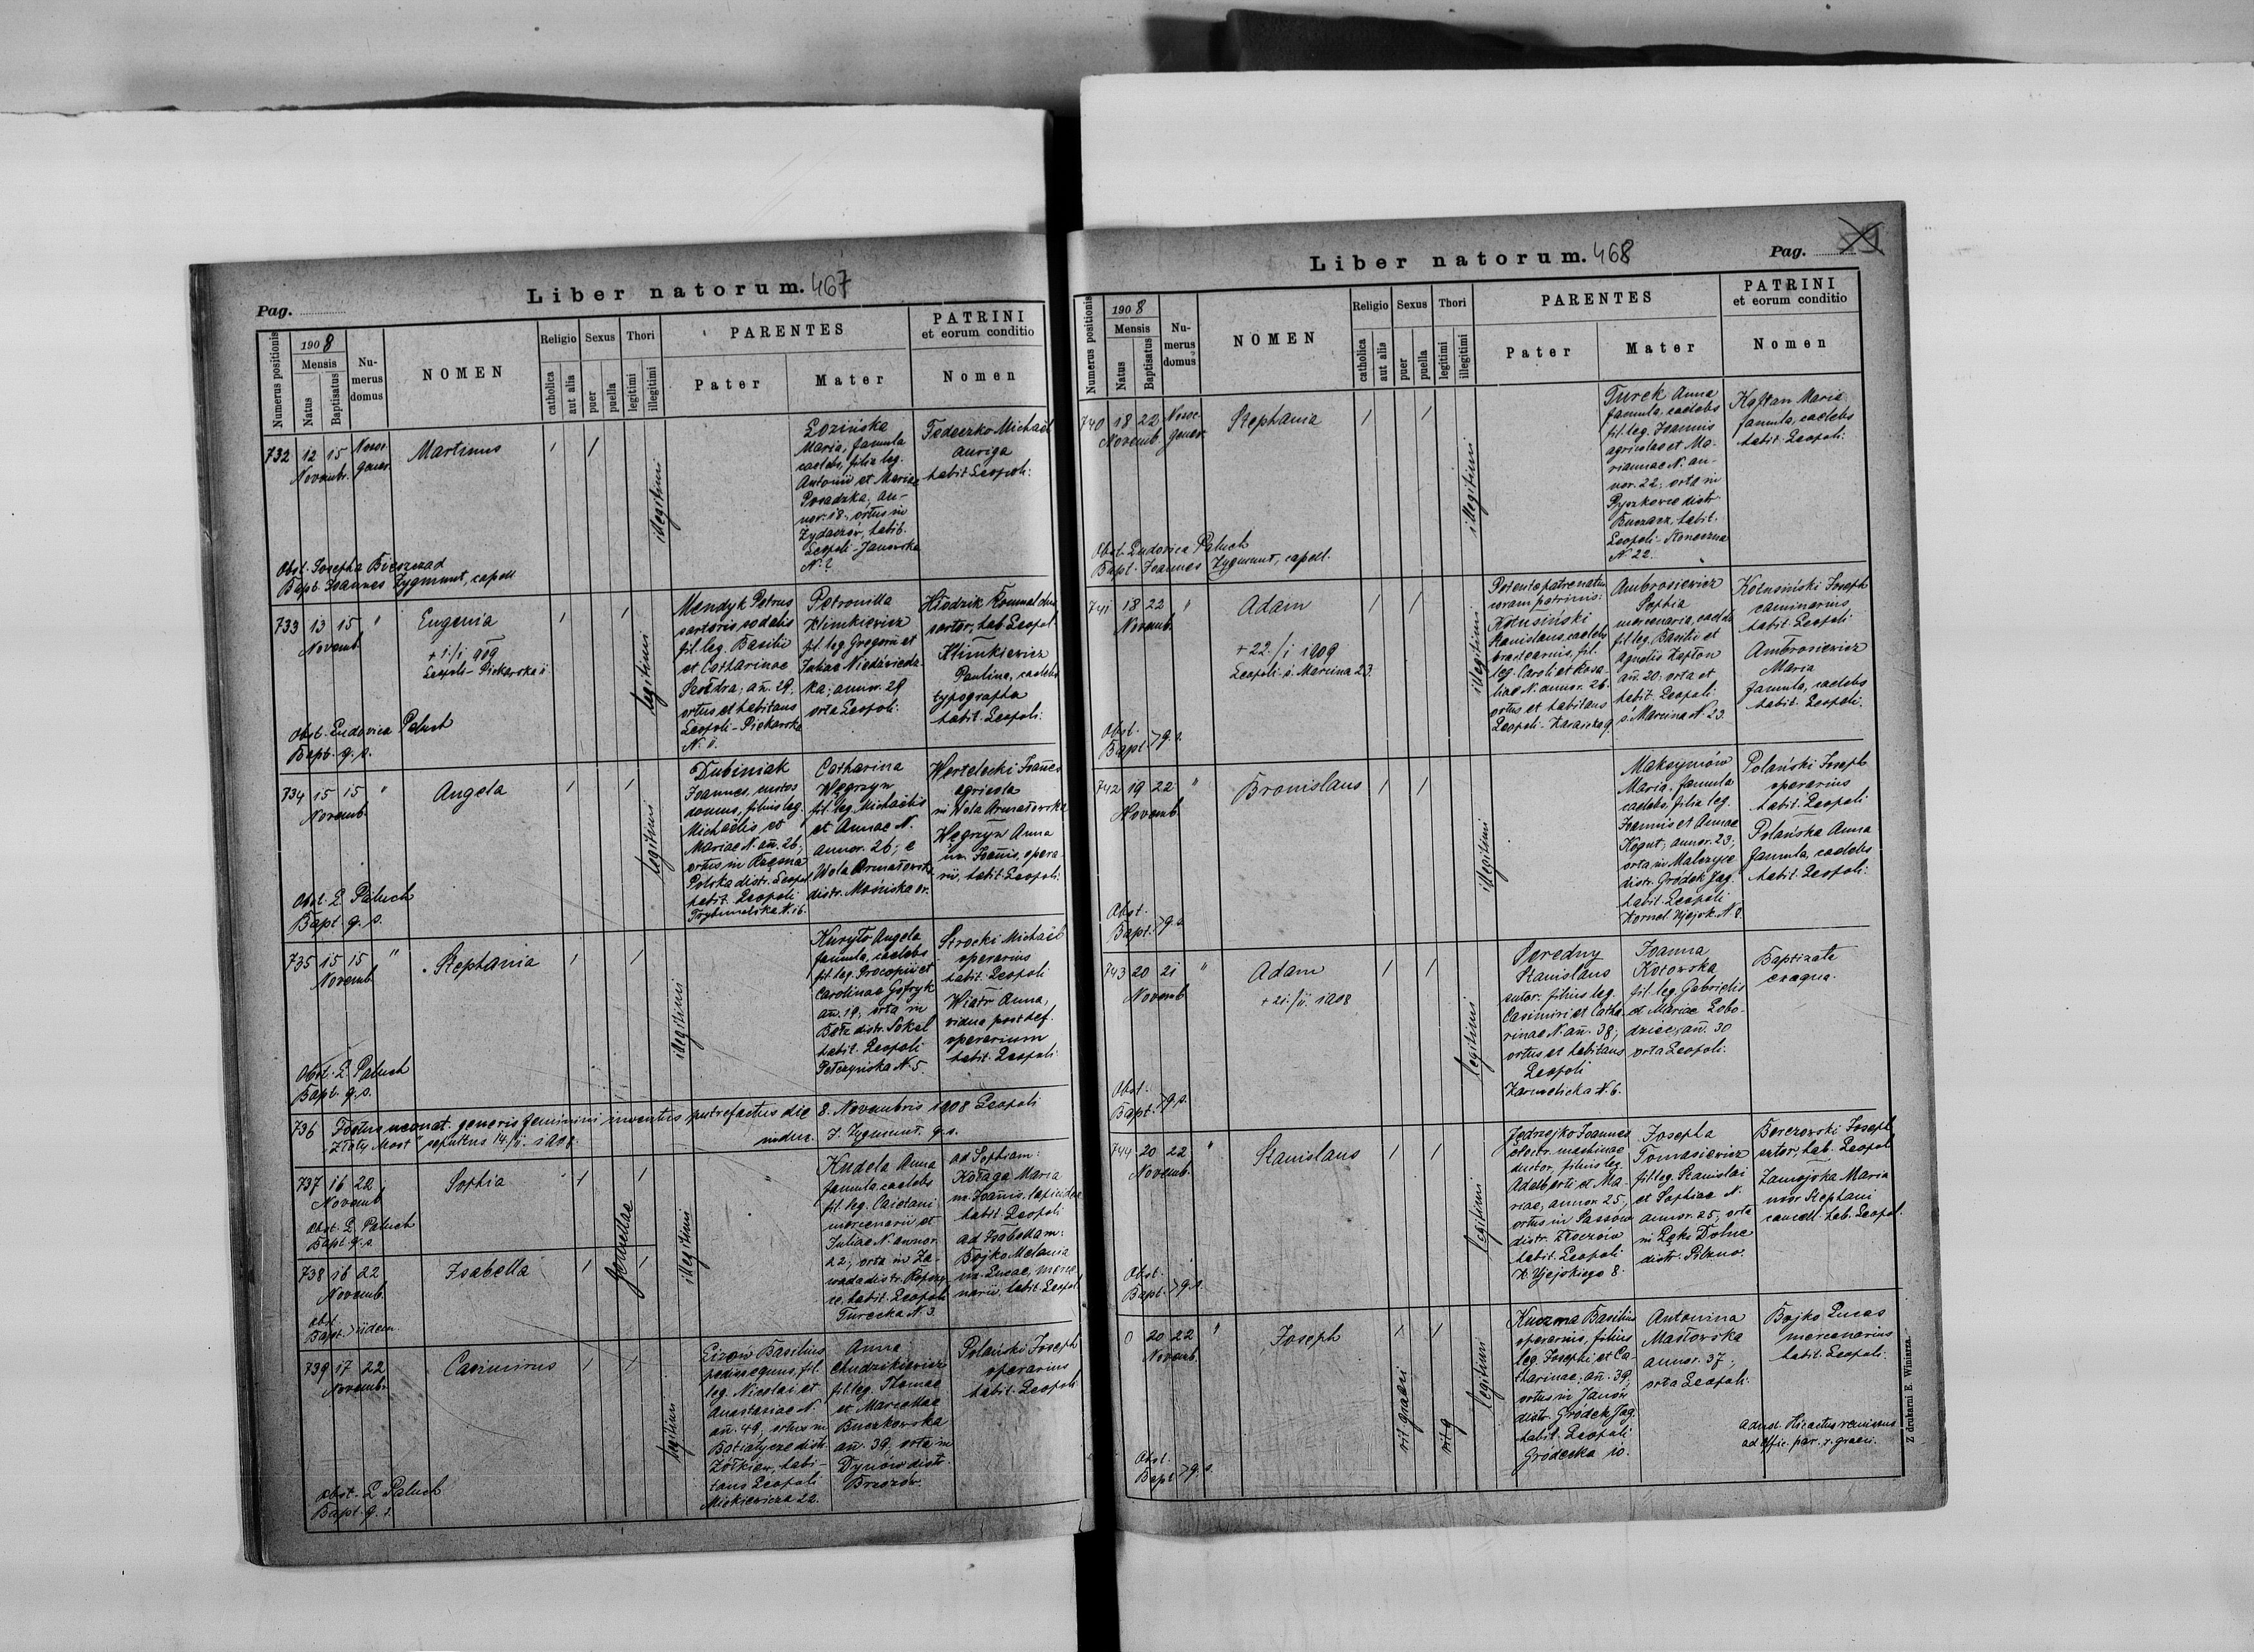 Pag.
Liber natorum. 467
Numerus positionis
1908
Mensis
Natus
Baptisatus
Nu-
merus
domus
NOMEN
Religio
catholica
aut alia
Sexus
puer
puella
Thori
legitimi
illegitimi
PARENTES
Pater
Mater
PATRINI
et eorum conditio
Nomen
732 12 15
Novembr.
Martinus
illegitimi
Maria, famula
caelebs, filia leg.
Antonii et Mariae
Posadzka, an-
nor. 18, ortus in
Żydaczów, habit.
Leopoli - Janowska
N. ?
Fedeczko Michaël
auriga
habit. Leopoli.
Obst. Josepha Bieszczad
Bapt. Joannes Zygmunt, capell
733 13 15 "
Novemb.
Eugenia
+ 1./1 909
Leopoli - Piekarska 11
legitimi
Mendyk Petrus
sartoris sodalis
fil. leg. Basilii
et Catharinae
Szołdra, añ. 29,
ortus et habitans
Leopoli - Piekarska
N. 11.
Petronilla
Klimkiewicz
fil. leg. Gregorii et
Juliae
annor. 29
orta Leopoli.
sartor, hab. Leopol.
Klimkiewicz
Paulina, caelebs
typographa
habit. Leopoli.
Obst. Ludovica Paluch
Bapt. q. s.
734 15 15 "
Novemb.
Angela
legitimi
Dubiniak
Joannes, custos
domus, filius leg.
Michaëlis et
Mariae N. añ. 26,
ortus in
Polska distr. Leopol.
habit. Leopoli
Trybunalska N. 16.
Catharina
Węgrzyn
fil. leg. Michaëlis
et Annae N.
annor. 26; e
Wola Armatowska
distr. Mościska or.
agricola
in Wola Armatowska
Węgrzyn Anna
ux. Joañis, opera-
rii, habit. Leopoli.
Obst. L. Paluch
Bapt. q. s.
735 15 15 "
Novemb.
Stephania
illegitimi
Kuryło Angela
famula, caelebs
fil. leg. Procopii et
Carolinae Gofryk
añ. 19, orta in
distr. Sokal
habit. Leopoli
Pełczyńska N. 5.
Strocki Michaël
operarius
habit. Leopoli
Wiatr Anna,
vidua post def.
operarium
habit. Leopoli
Obst. L. Paluch
Bapt. q. s.
736 Foetus neonat. generis feminini inventus putrefactus die 8. Novembris 1908 Leopoli
"Złoty Most" sepultus 14/11. 1908. J. Zygmunt. q. s.
737 16 22
Novemb.
Sophia
Obst. L. Paluch
Bapt. q. s.
gemellae
illegitimi
"
Kudela Anna
famula, caelebs
fil. leg. Caietani
mercenarii et
Juliae N. annor.
22; orta in Za-
wada distr.
habit. Leopoli
Turecka N. 3.
ad Sophiam:
Kołaga Maria
ux. Joañis, lapicidae
habit. Leopoli
ad Isabellam:
Bojko Melania
ux. Lucae, merce-
narii, habit. Leopol
738 16 22
Novemb.
Isabella
Obst.
Bapt. > iidem
739 17 22
Novembr.
Casimirus
legitimi
Basilius
fil.
leg. Nicolai et
Anastasiae N.
añ. 49, ortus in
Batiatycze distr.
Żółkiew, habi-
tans Leopoli
Mickiewicza 22.
Anna
Chudzikiewicz
fil. leg. Thomae
et Marcellae
Buczkowska
añ. 39, orta in
Dynów distr.
Brzozów.
Polański Joseph
operarius
habit. Leopoli
Obst. L. Paluch
Bapt. q. s.
Liber natorum. 468
Pag.
Numerus positionis
1908
Mensis
Natus
Baptisatus
Nu-
merus
domus
NOMEN
Religio
catholica
aut alia
Sexus
puer
puella
Thori
legitimi
illegitimi
PARENTES
Pater
Mater
PATRINI
et eorum conditio
Nomen
740 18 22
Novemb.
Stephania
illegitimi
Turek Anna
famula, caelebs
fil. leg. Joannis
agricolae et Ma-
riannae N. an-
nor. 22; orta in
Pyszkowce distr.
Buczacz, habit.
Leopoli - Słoneczna
N. 22.
Kaftan Maria
famula, caelebs
habit. Leopoli.
Obst. Ludovica Paluch
Bapt. Joannes Zygmunt, capell.
741 18 22 "
Novemb.
Adam
+ 22./1 1909
Leopoli ś. Marcina 23.
illegitimi
coram patrinis:
Kołusiński
Stanislaus, caelebs
fil.
leg. Caroli et Rosa-
liae N. annor. 26.
ortus et habitans
Leopoli
Ambrosiewicz
Sophia
mercenaria, caelebs
fil. leg. Basilii et
Agnetis
añ. 20, orta et
habit. Leopoli
ś. Marcina N. 23.
Kołusiński Joseph
caminarius
habit. Leopoli.
Ambrosiewicz
Maria
famula, caelebs
habit. Leopoli.
Obst.
Bapt. > q. s.
742 19 22 "
Novemb.
Bronislaus
illegitimi
Maksymów
Maria, famula
caelebs, filia leg.
Joannis et Annae
Kogut, annor. 23;
orta in Malczyce
distr. Gródek Jag.
habit. Leopoli
Kornel Ujejsk. N. 8.
Polański Joseph
operarius
habit. Leopoli
Polańska Anna
famula, caelebs
habit. Leopoli.
Obst.
Bapt. > q. s.
743 20 21 "
Novemb.
Adam
+ 21./11. 1908
legitimi
Poredny
Stanislaus
sutor, filius leg.
Casimiri et Catha-
rinae N. añ. 38;
ortus et habitans
Leopoli
N. 6.
Joanna
Kotowska
fil. leg. Gabrielis
et Mariae Łobo-
dziec, añ. 30
orta Leopoli.
Baptizata
ex aqua.
Obst.
Bapt. > q. s.
744 20 22 "
Novemb.
Stanislaus
legitimi
Jędrzejko Joannes
electr. machinae
ductor, filius leg.
Adalberti et Ma-
riae, annor. 25,
ortus in Sassów
distr. Złoczów
habit. Leopoli
K. Ujejskiego 8.
Josepha
Tomasiewicz
fil. leg. Stanislai
et Sophiae N.
annor. 25, orta
in Łęki Dolne
distr. Pilzno.
Berezowski Joseph
sutor, hab. Leopol
Zamojska Maria
uxor Stephani
cancell. hab. Leopol.
Obst.
Bapt. > q. s.
0 20 22 "
Novemb.
Joseph
rit graeci
rit g
legitimi
Kuczma Basilius
operarius, filius
leg. Josephi et Ca-
tharinae, añ. 39,
ortus in Janów
distr. Gródek Jag.
habit. Leopoli
Gródecka 10.
Antonina
Masłowska
annor. 37;
orta Leopoli.
Bojko Lucas
mercenarius
habit. Leopoli.
ad offic. par. r. graeci.
Obst.
Bapt. > q. s.
Z drukarni E. Winiarza.